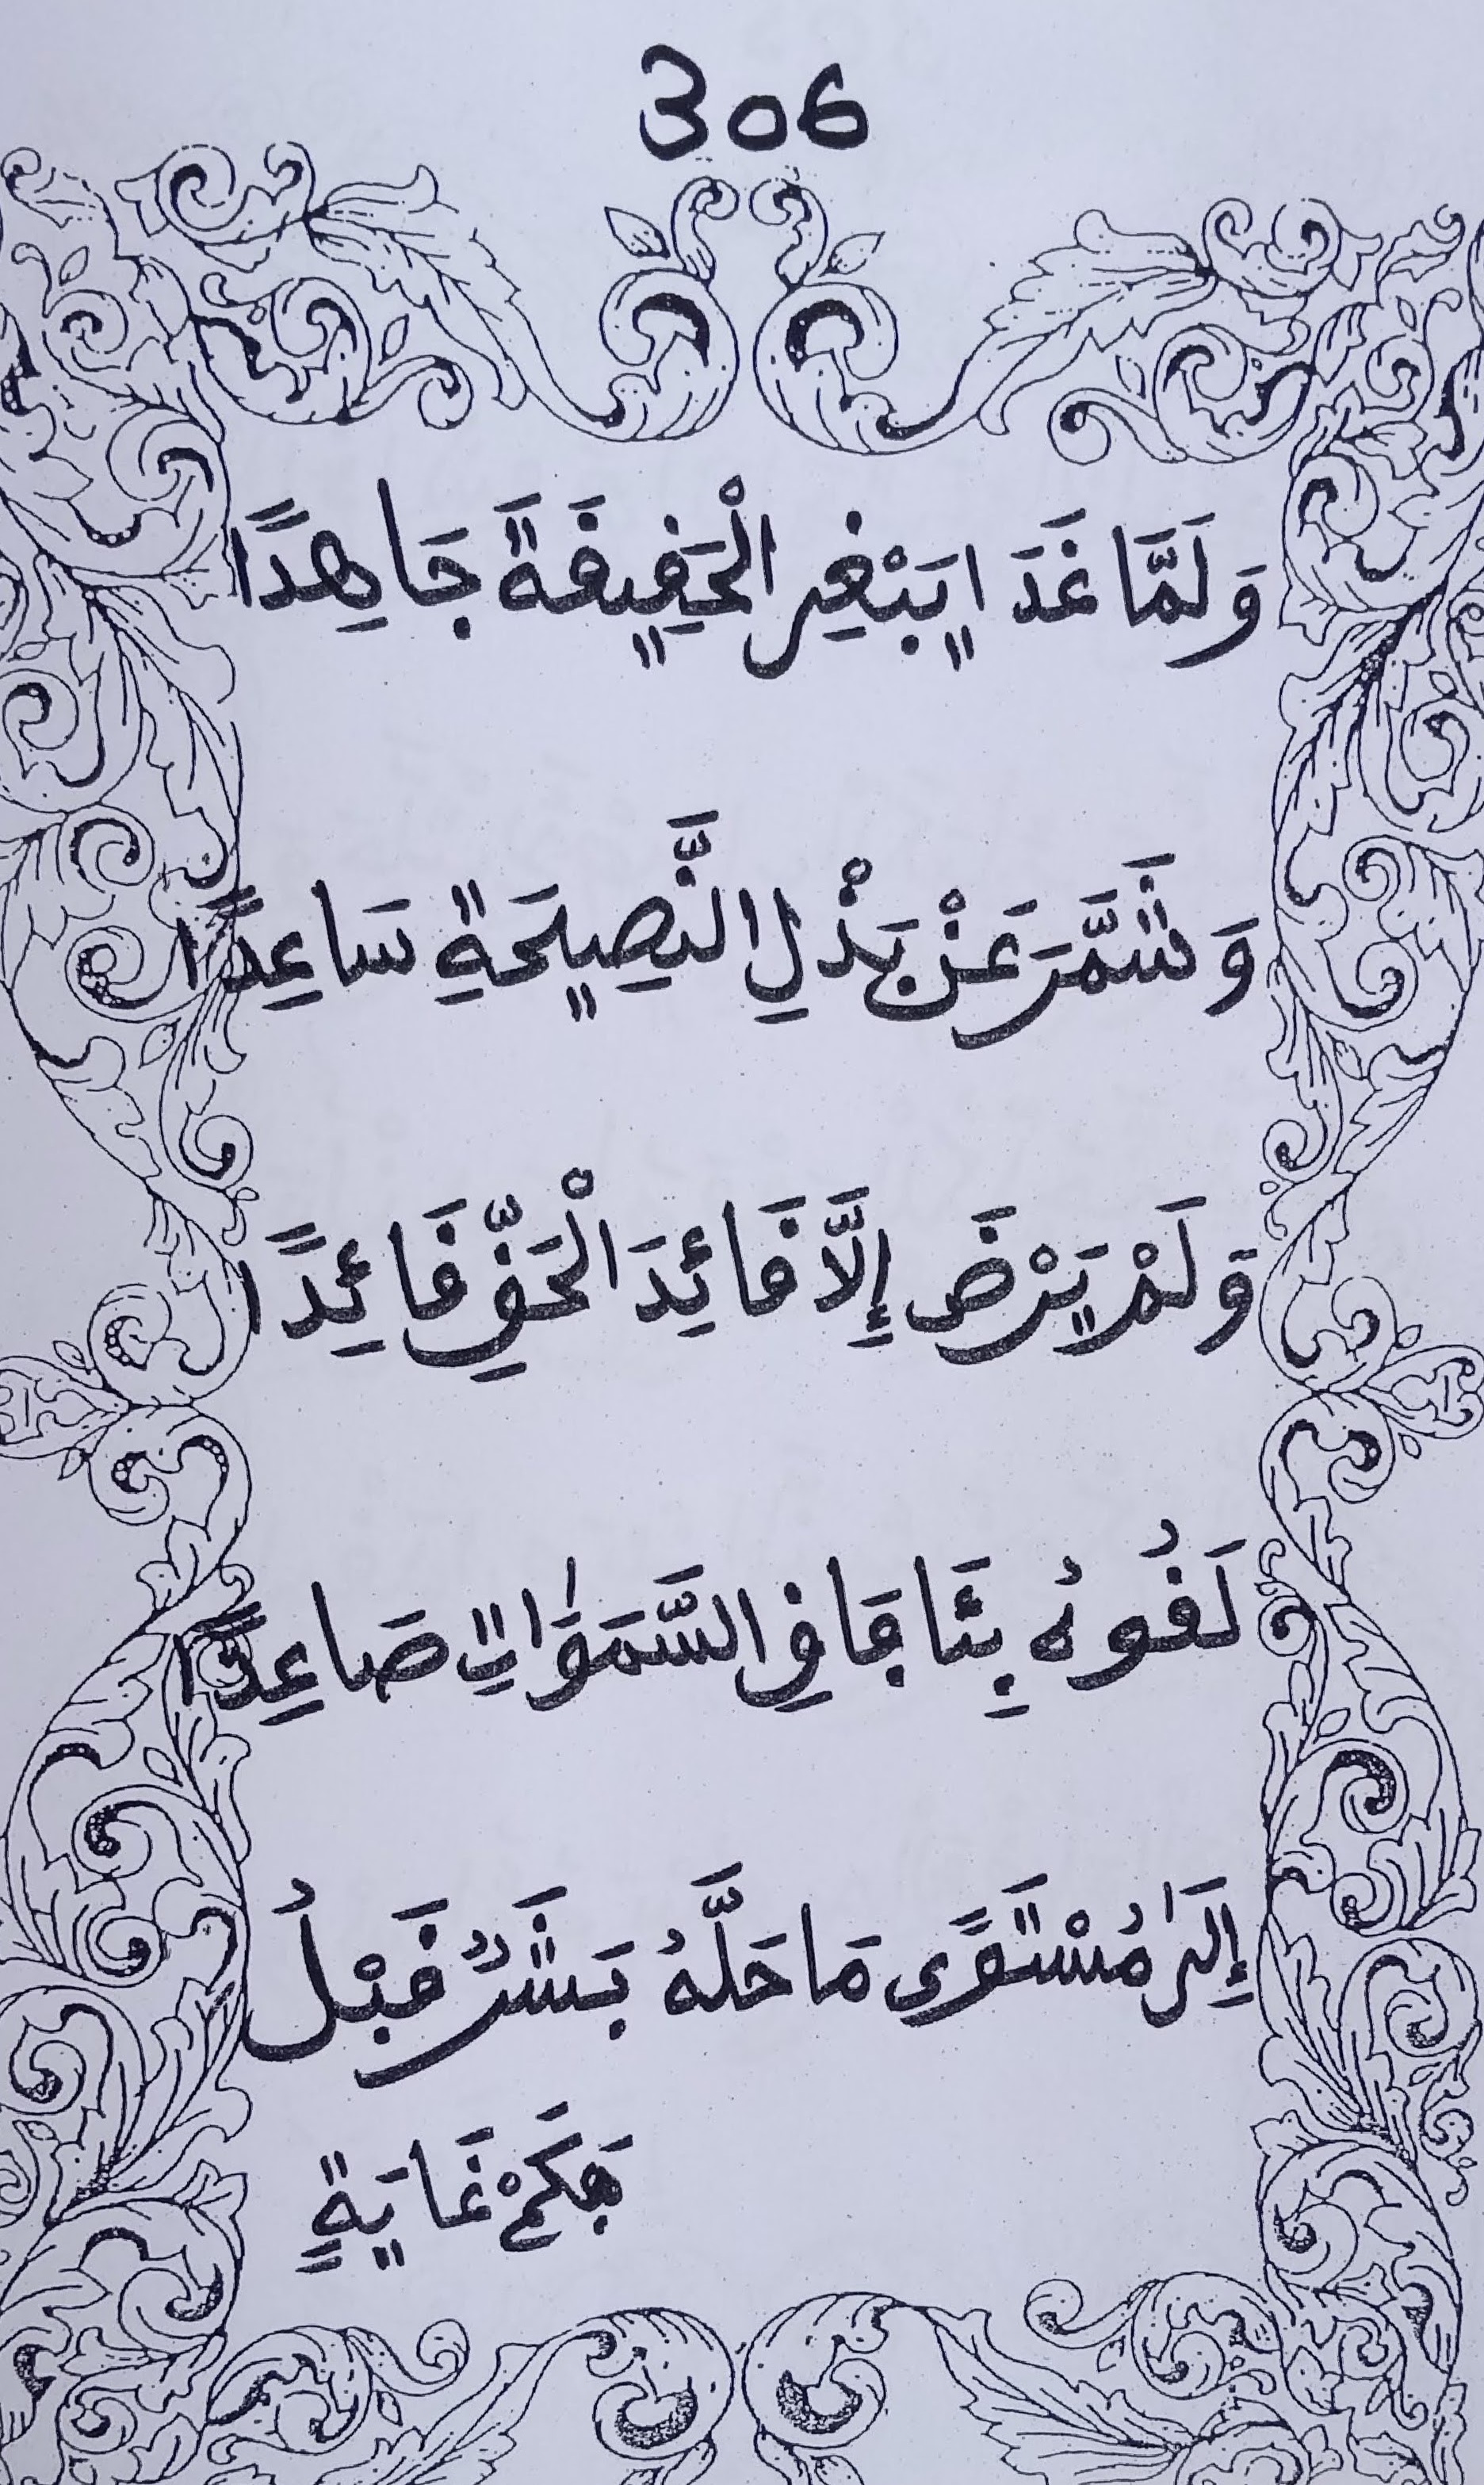 306
وَلَمَّا غَدَا يَبْغِي الْحَقِيقَةَ جَاهِدًا
وَشَمَّرَ عَنْ بَذْلِ النَّصِيحَةِ سَاعِدًا
وَلَمْ يَرْضَ إِلَّا قَائِدَ الْحَقِّ قَائِدًا
لَقُوهُ فِي السَّمَوَٰاتِ صَاعِدًا
إِلَىٰ مُسْتَوًى مَا حَلَّهُ بَشَرٌ قَبْلُ
فَكَمْ غَايَةٍ